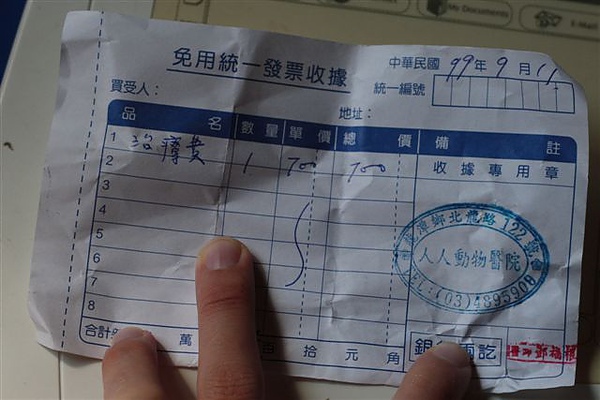 My Documents
E-Mail
免用統一發票收據
中華民國 99年 9月 11
統一編號
買受人：
地址：
品名 數量 單價 總價 備註
1 治療費 1 700 700 收據專用章
2
3
4
5
6
7
8
北龍路122號
人人動物醫院
合計 萬 百 拾 元 角
銀 兩訖